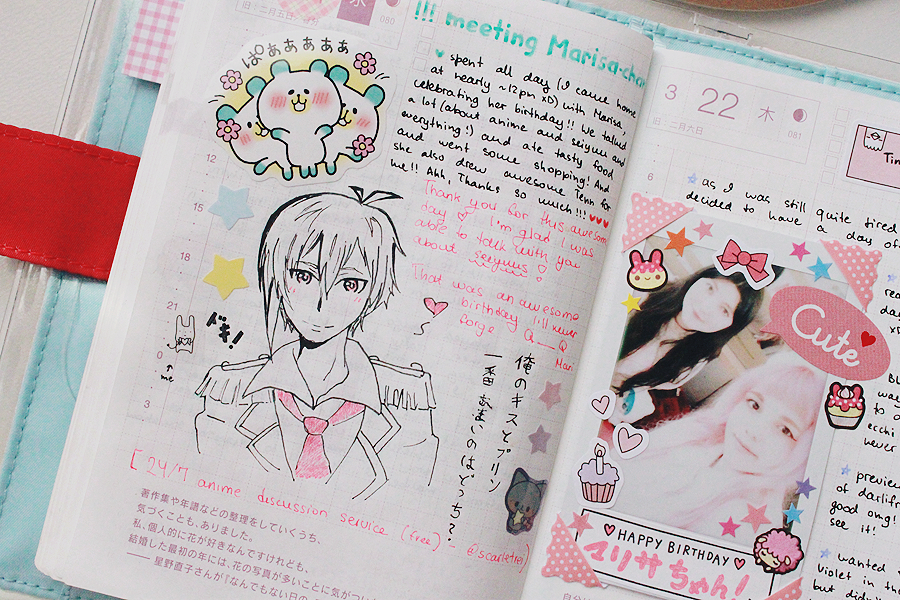 旧 二月五日
水
080
!!! meeting Marisa-chan
ぱぁぁぁぁぁ
spent all day (I came home
at nearly ~12pm xD) with Marisa,
celebrating her birthday!! We talked
a lot (about anime and seiyuu and
everything!) and ate tasty food
and went some shopping! And
she also drew awesome Tenn for
me!! Ahh, Thanks so much!!!
Thank you for this awesome
day I'm glad I was
able to talk with you
about seiyuus
That was an awesome
birthday I'll never
forge
Q__Q
Mari
12
15
18
21
0
3
me
ドキ!
俺のキスとプリン
一番あまいのはどっち?
[24/7 anime discussion service (free) - @scarletrej
著作集や年譜などの整理をしていくうち、
気づくことも、ありました。
私、個人的に花が好きなんですけれども、
結婚した最初の年には、花の写真が多いことに気がつい
──星野直子さんが『なんでもない日の
3 22 木
旧 二月六日
081
6
Tim
as I was still quite tired
decided to have a day of
Cute
rea
day
xD
was
to o
ecchi
never
preview
of darlifra
good omg!
see it!
wanted
Violet in the
but didn
HAPPY BIRTHDAY
マリサちゃん!
自分